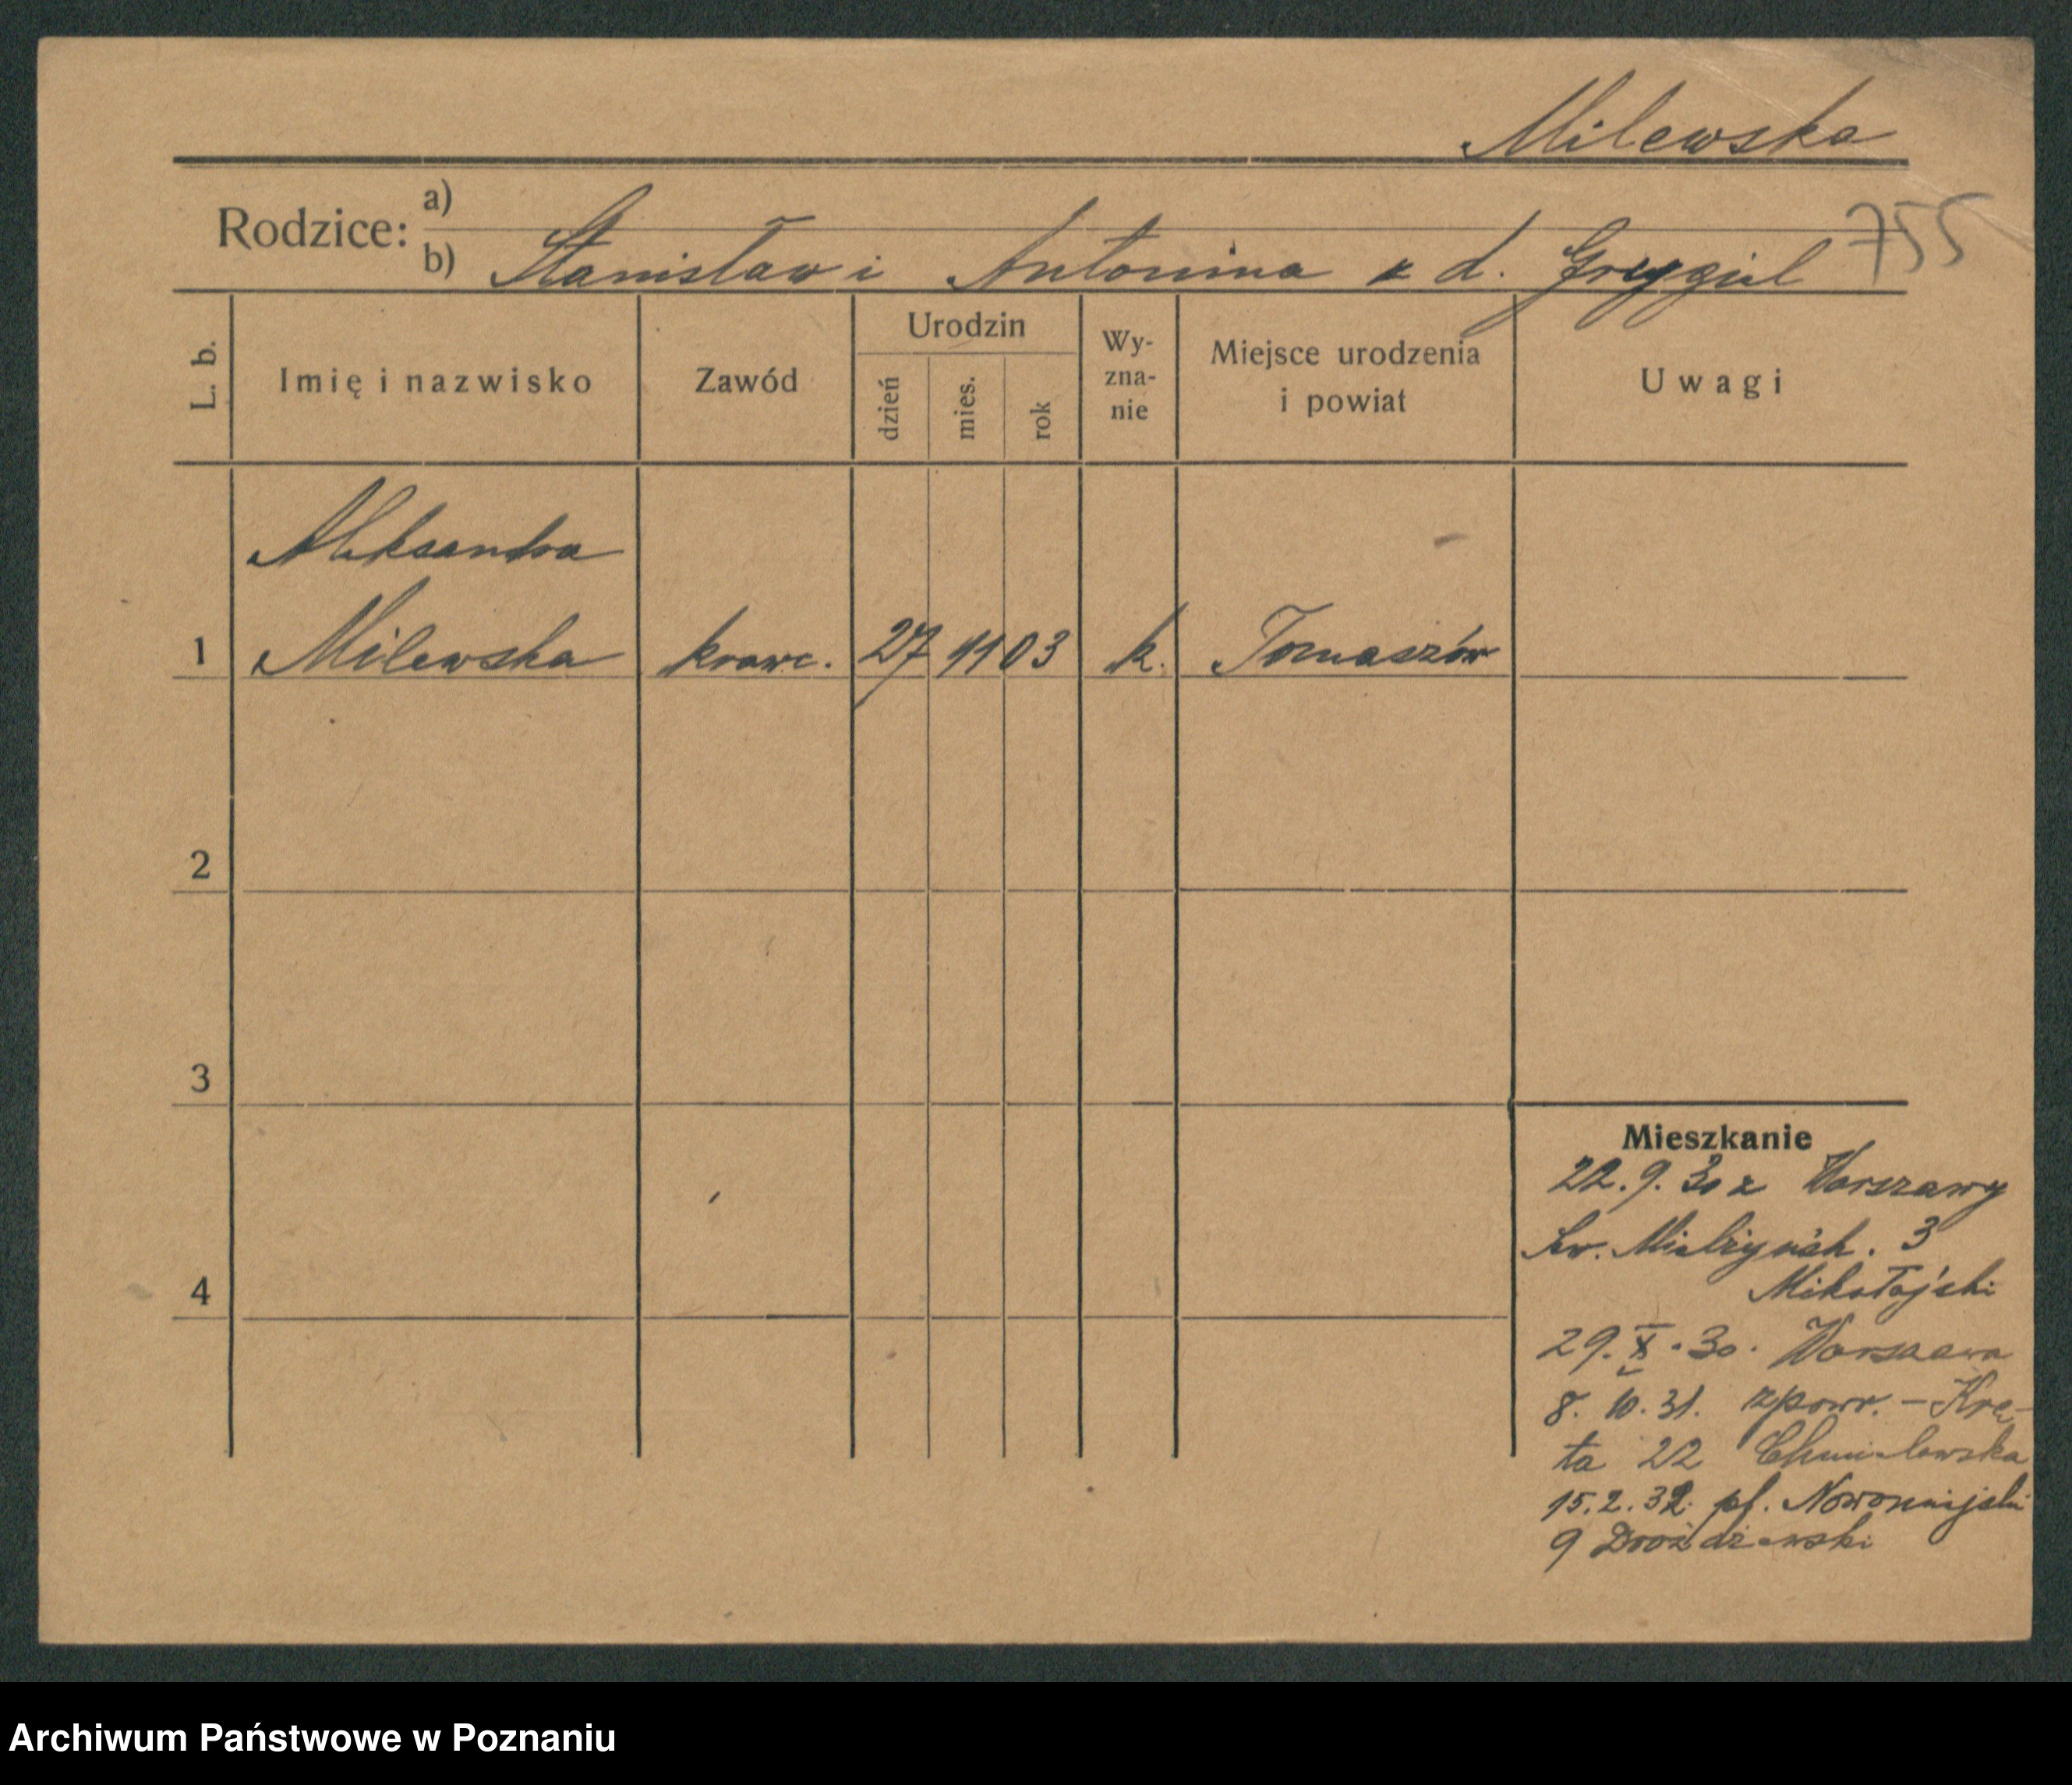 Milewska
755
Rodzice: a)
b) Stanisław i Antonina z d. Grygiel
L. b.
Imię i nazwisko
Zawód
Urodzin
dzień
mies.
rok
Wy-
zna-
nie
Miejsce urodzenia
i powiat
Uwagi
Aleksandra
1 Milewska krawc. 27 11 03 k. Tomaszów
2
3
4
Mieszkanie
22.9.30 z Warszawy
Mielżyńsk. 3
Mikołajski
29. X. 30. Warszawa
8. 10. 31. zpowr. – Kre-
ta 22 Chmielewska
15.2.32. pl. Nowomiejski
9 Drożdżewski
Archiwum Państwowe w Poznaniu